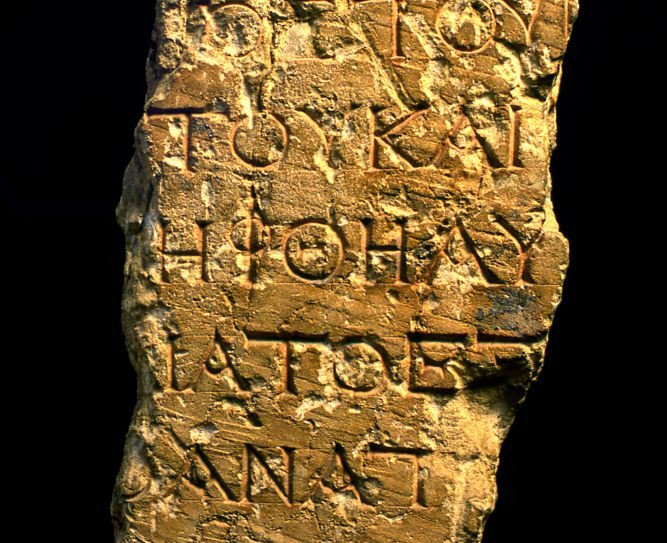 ΤΟΥ ΚΑΙ
ΗΦΘΗ ΑΥ
ΙΑ ΤΟ ΕΤ
ΑΝΑΤ